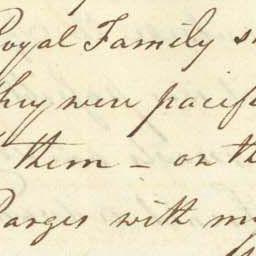 Royal Family s
they were pacif
them – on th
Barges with m